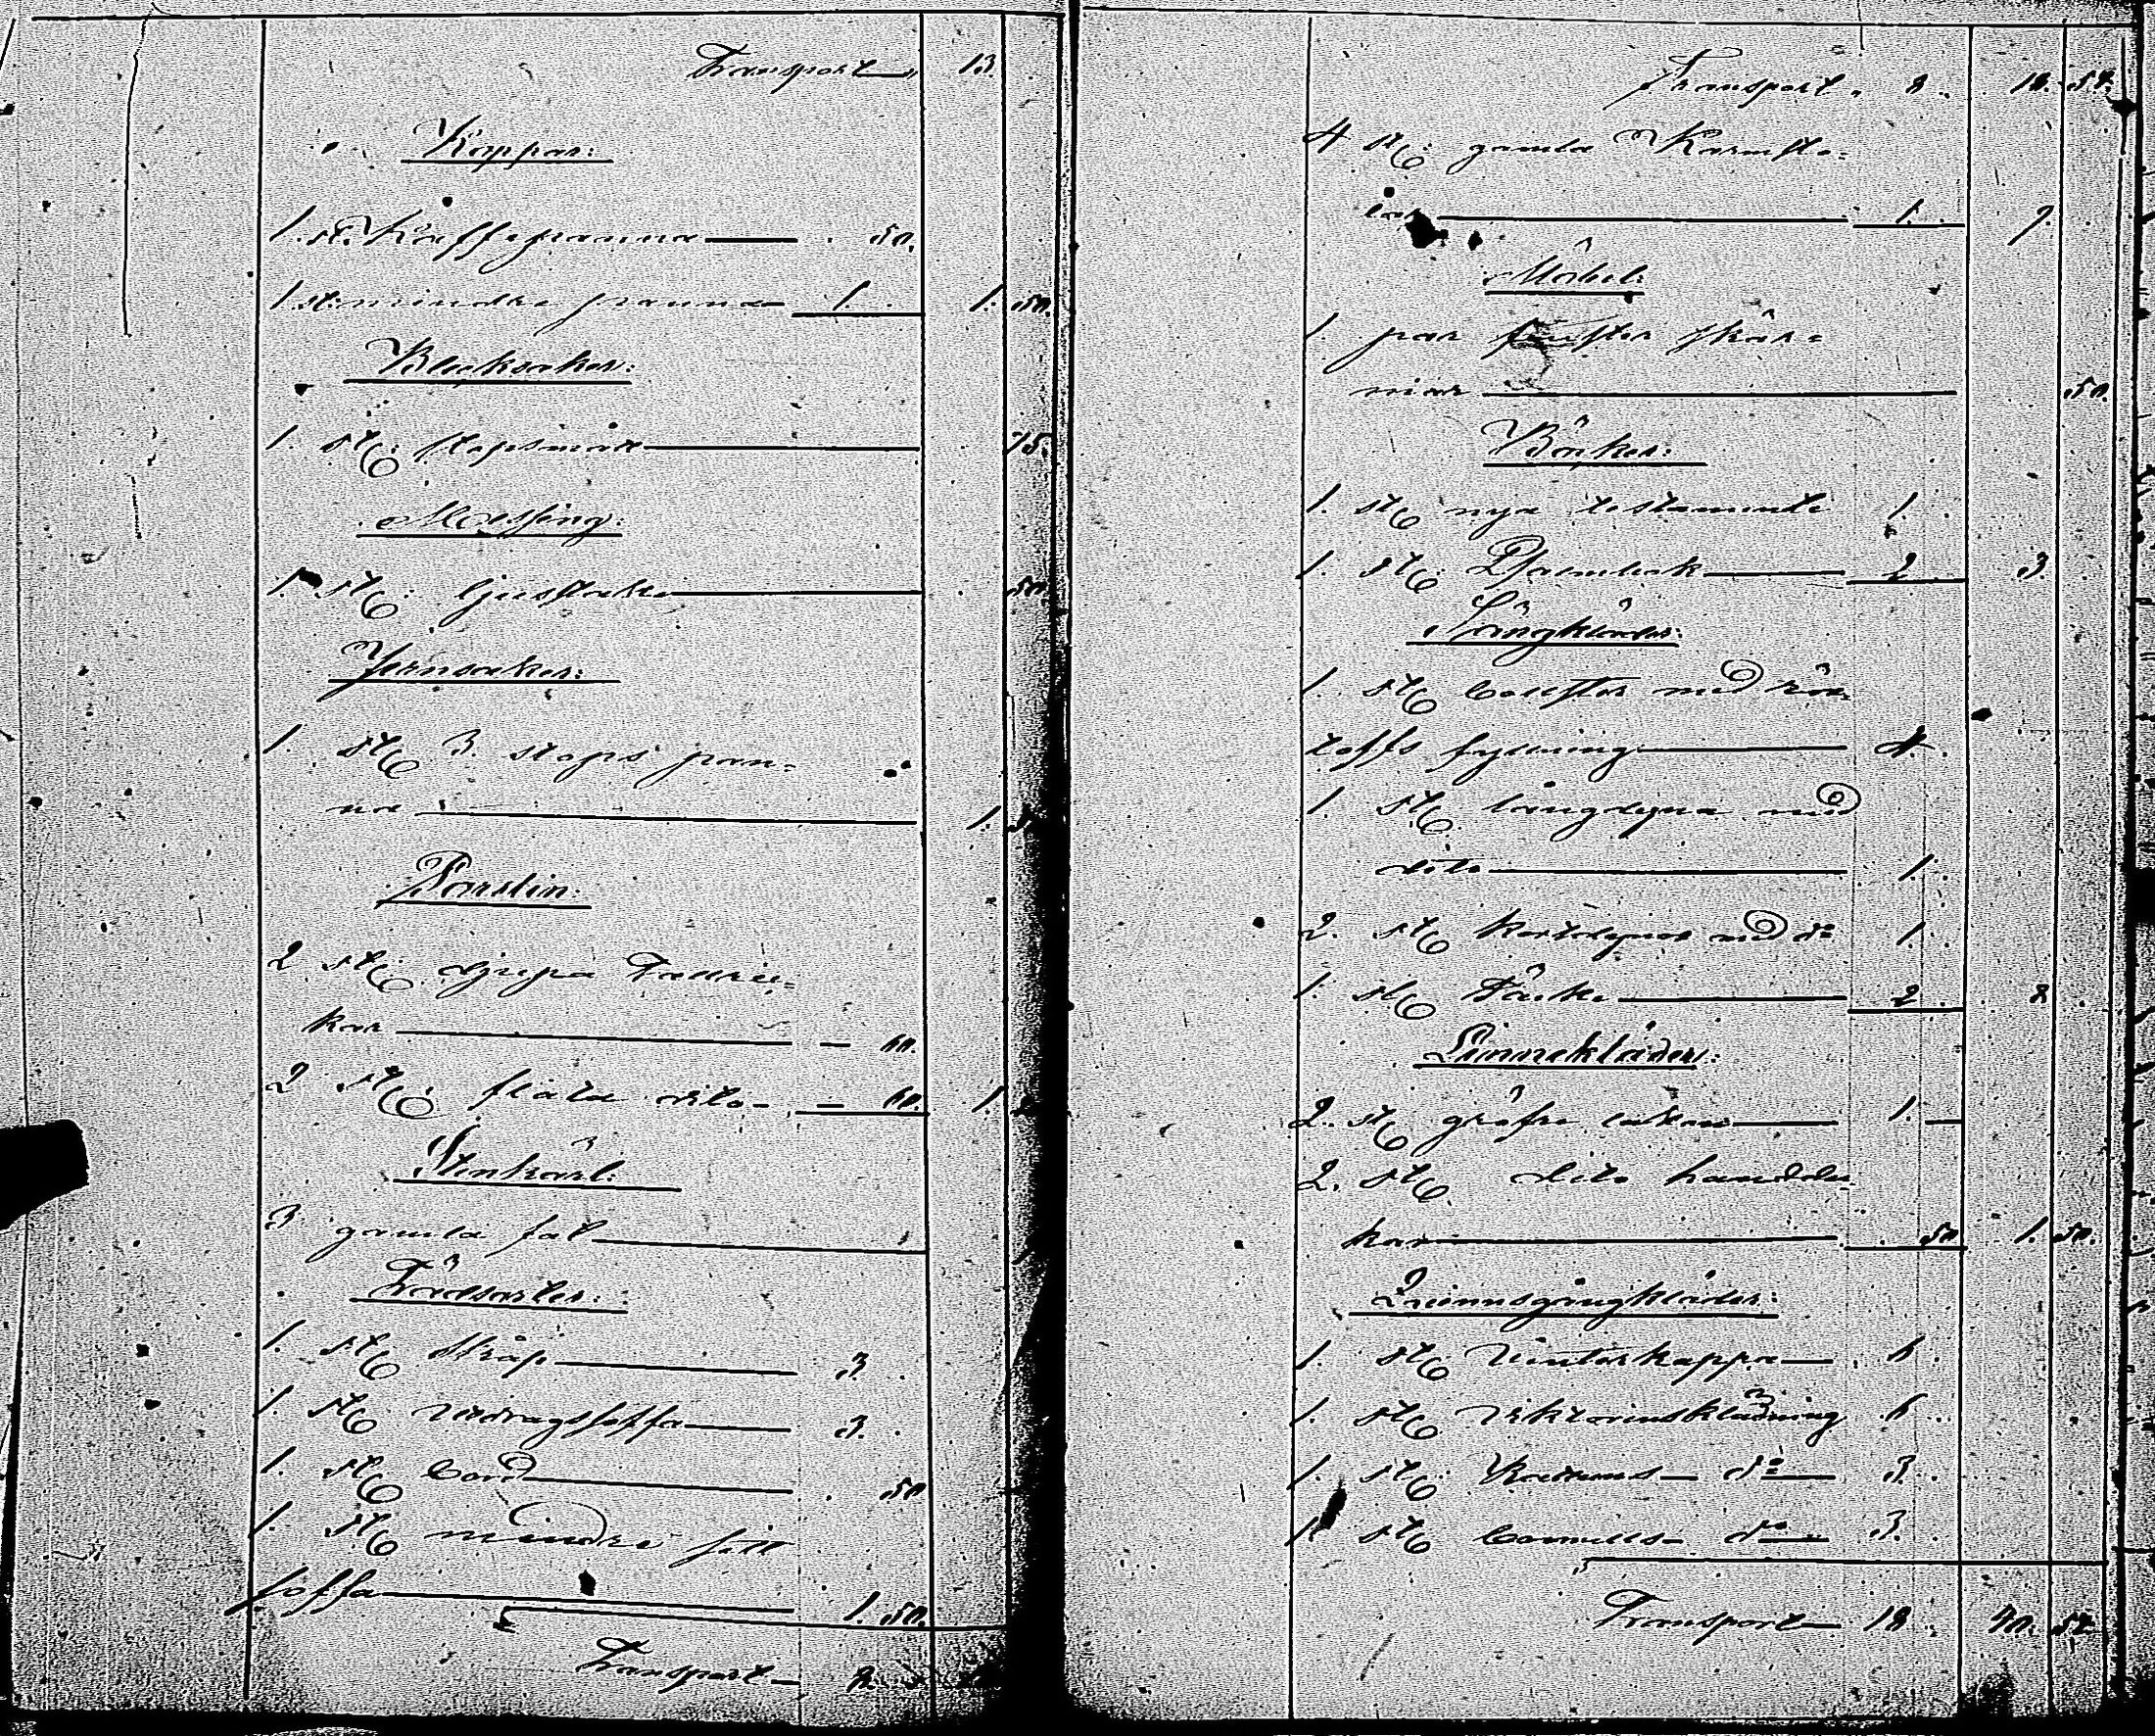 Transport 13.
Koppar:
1. st. Kaffepanna . 50.
1 st. mindre panna 1. 1. 50.
Blecksaker:
1. st: stopsmått 75.
Messing:
1. st: ljusstake 50.
Jernsaker:
1. st 3. stops pan-
na 1.
Porslin:
2 st: djupa Tallric-
kar — 60.
2 st: flata dito — 60. 1.
Stenkärl:
3 gamla fat
Trädsaker:
1. st skåp 3.
1. st utdragssoffa 3.
1. st bord . 50
1. st mindre sätt
soffa 1. 50.
Transport 8.
Transport. 8. 18. 52.
4 st: gamla Karmsto-
lar 1. 9.
Möbel:
1. par fenster skär-
mar 50.
Böcker:
1. st nya testamente 1.
1. st: Psalmbok 2 3.
Sängkläder:
1. st bolster med
fyllning 4.
1. st långdyna med
dito 1.
2. st kortdynor med do 1.
1. st Täcke 2 8
Linnekläder:
2. st gröfre lakan 1 —
2. st dito handdu-
kar 50 1. 50.
Qvinnsgångkläder:
1. st: Vinterkappa 6.
1. st: Viktorinsklädning 6.
1. st: Kattuns do 3.
1. st bomulls do 3.
Transport 18. 40. 52